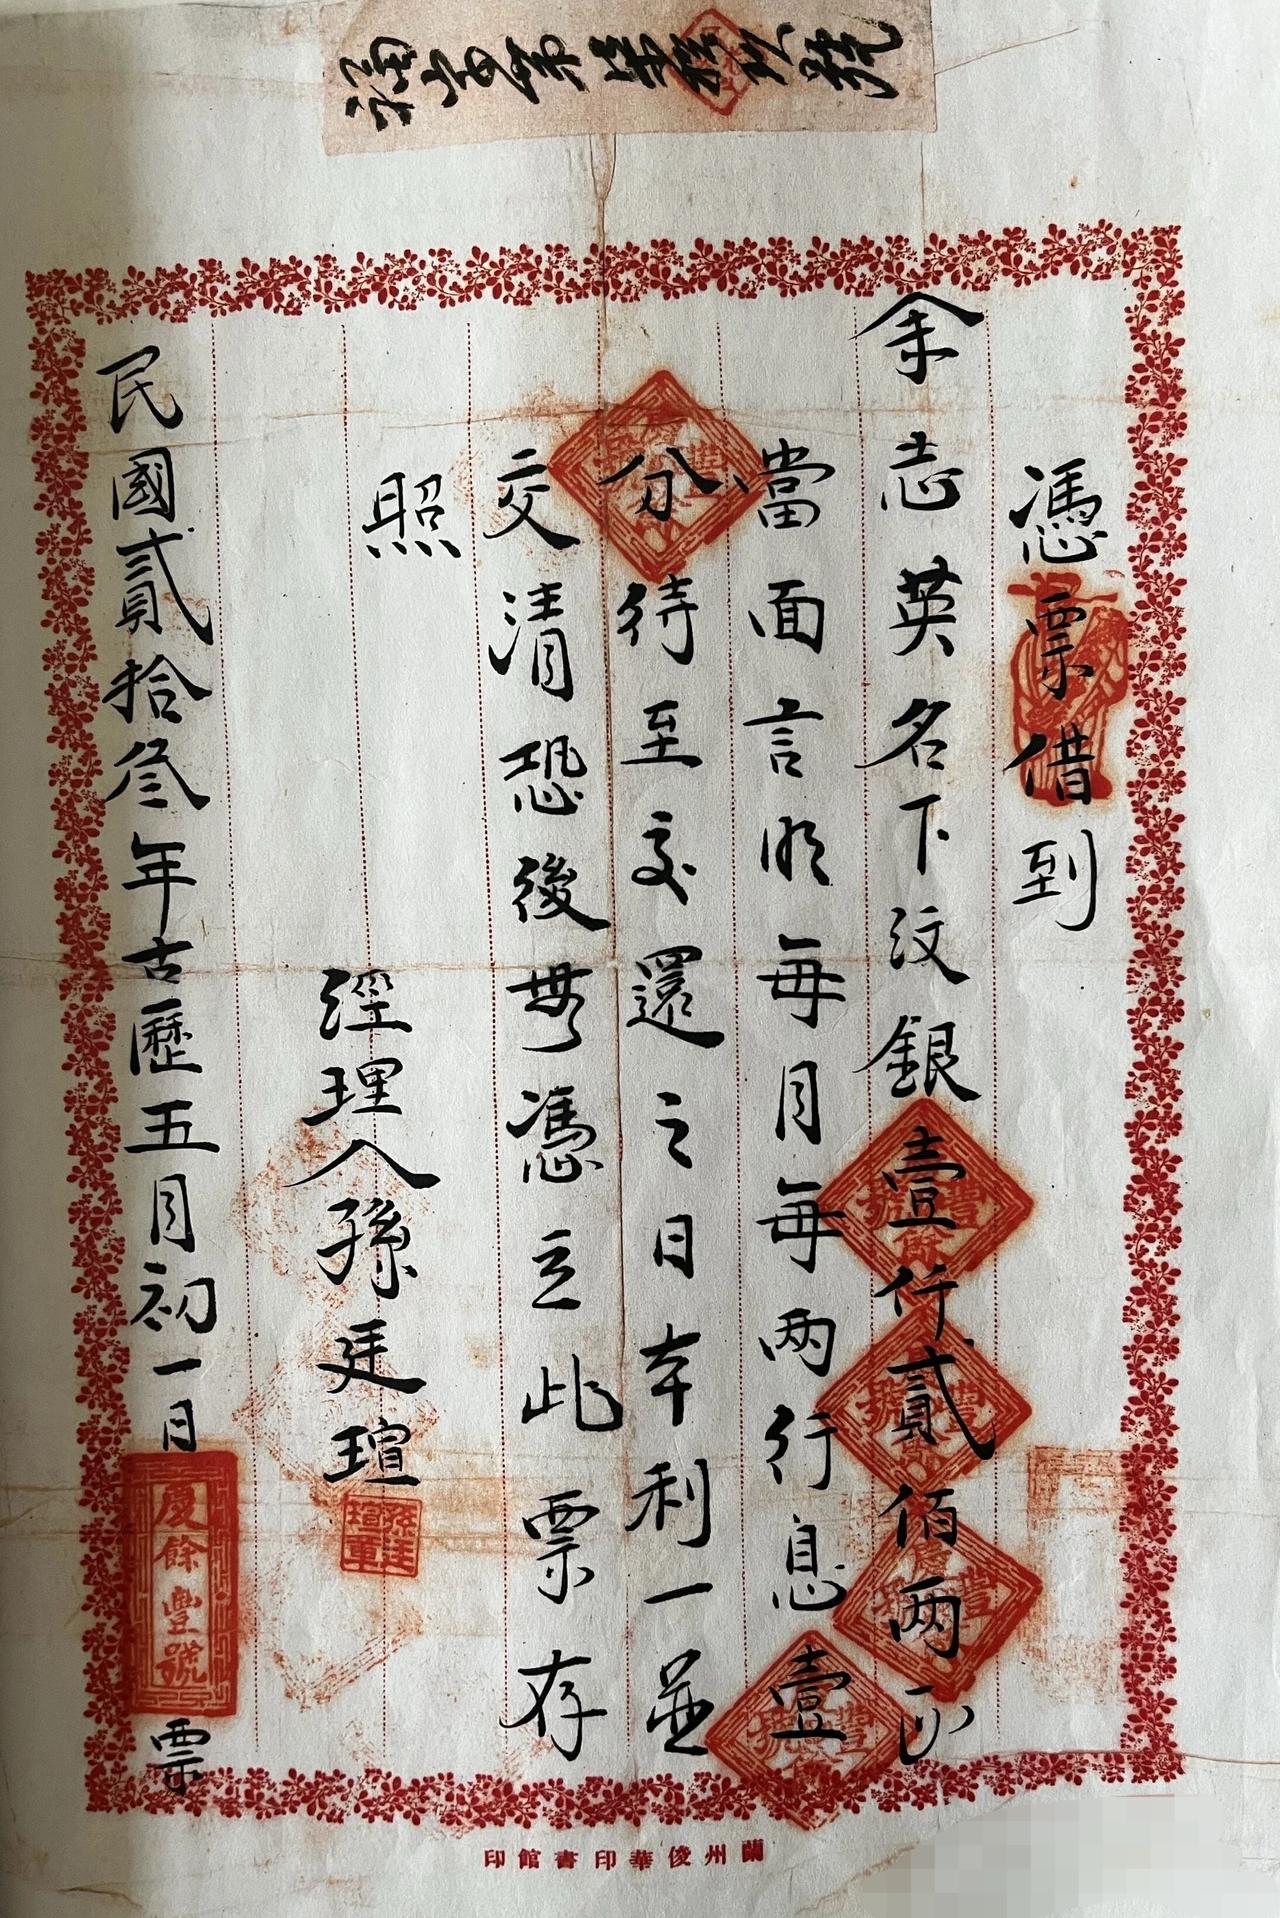 憑票借到
余志英名下汶銀壹仟貳佰两正
當面言明每月每两行息壹
分待至交還之日本利一並
交清恐後無憑立此票存
照
經理人孫廷瑄
民國貳拾叁年古歷五月初一日
慶餘豐號
票
蘭州俊華印書館印